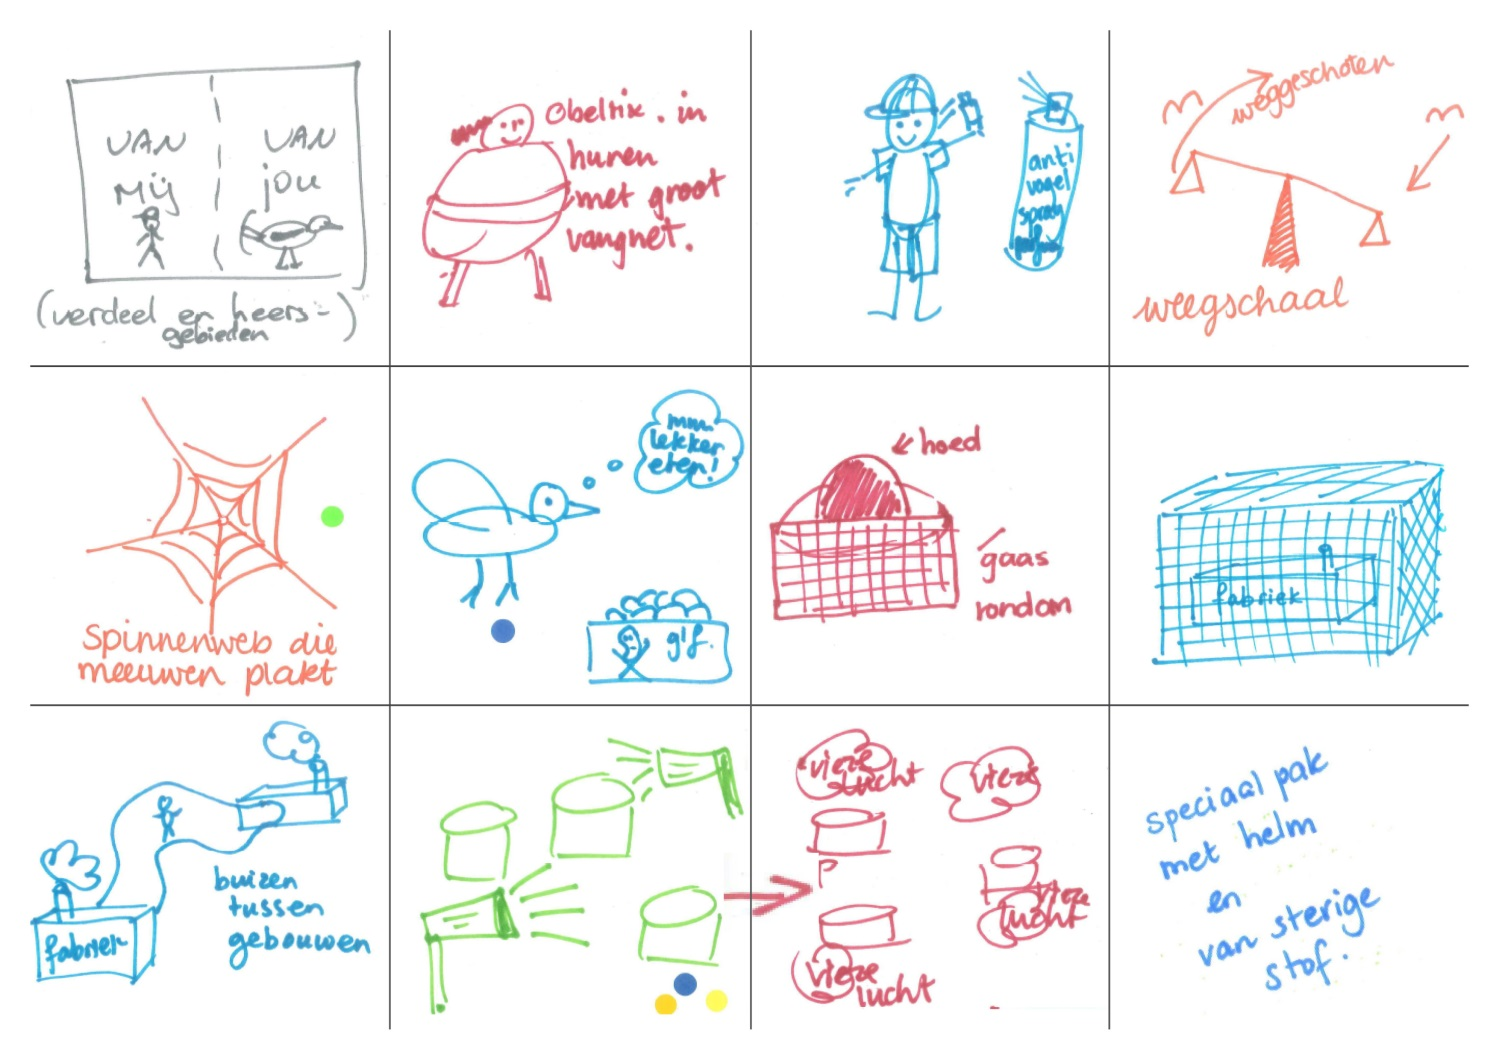 VAN
Mij
VAN
jou
(verdeel en heers-
gebieden)
Obelix. in
huren
met groot
vangnet.
anti
vogel
spray
weggeschoten
weegschaal
spinnenweb die
meeuwen plakt
mm..
lekker
eten!
gif.
hoed
gaas
rondom
fabriek
fabriek
buizen
tussen
gebouwen
vieze
lucht
vieze
vieze
lucht
vieze
lucht
speciaal pak
met helm
en
van sterige
stof.